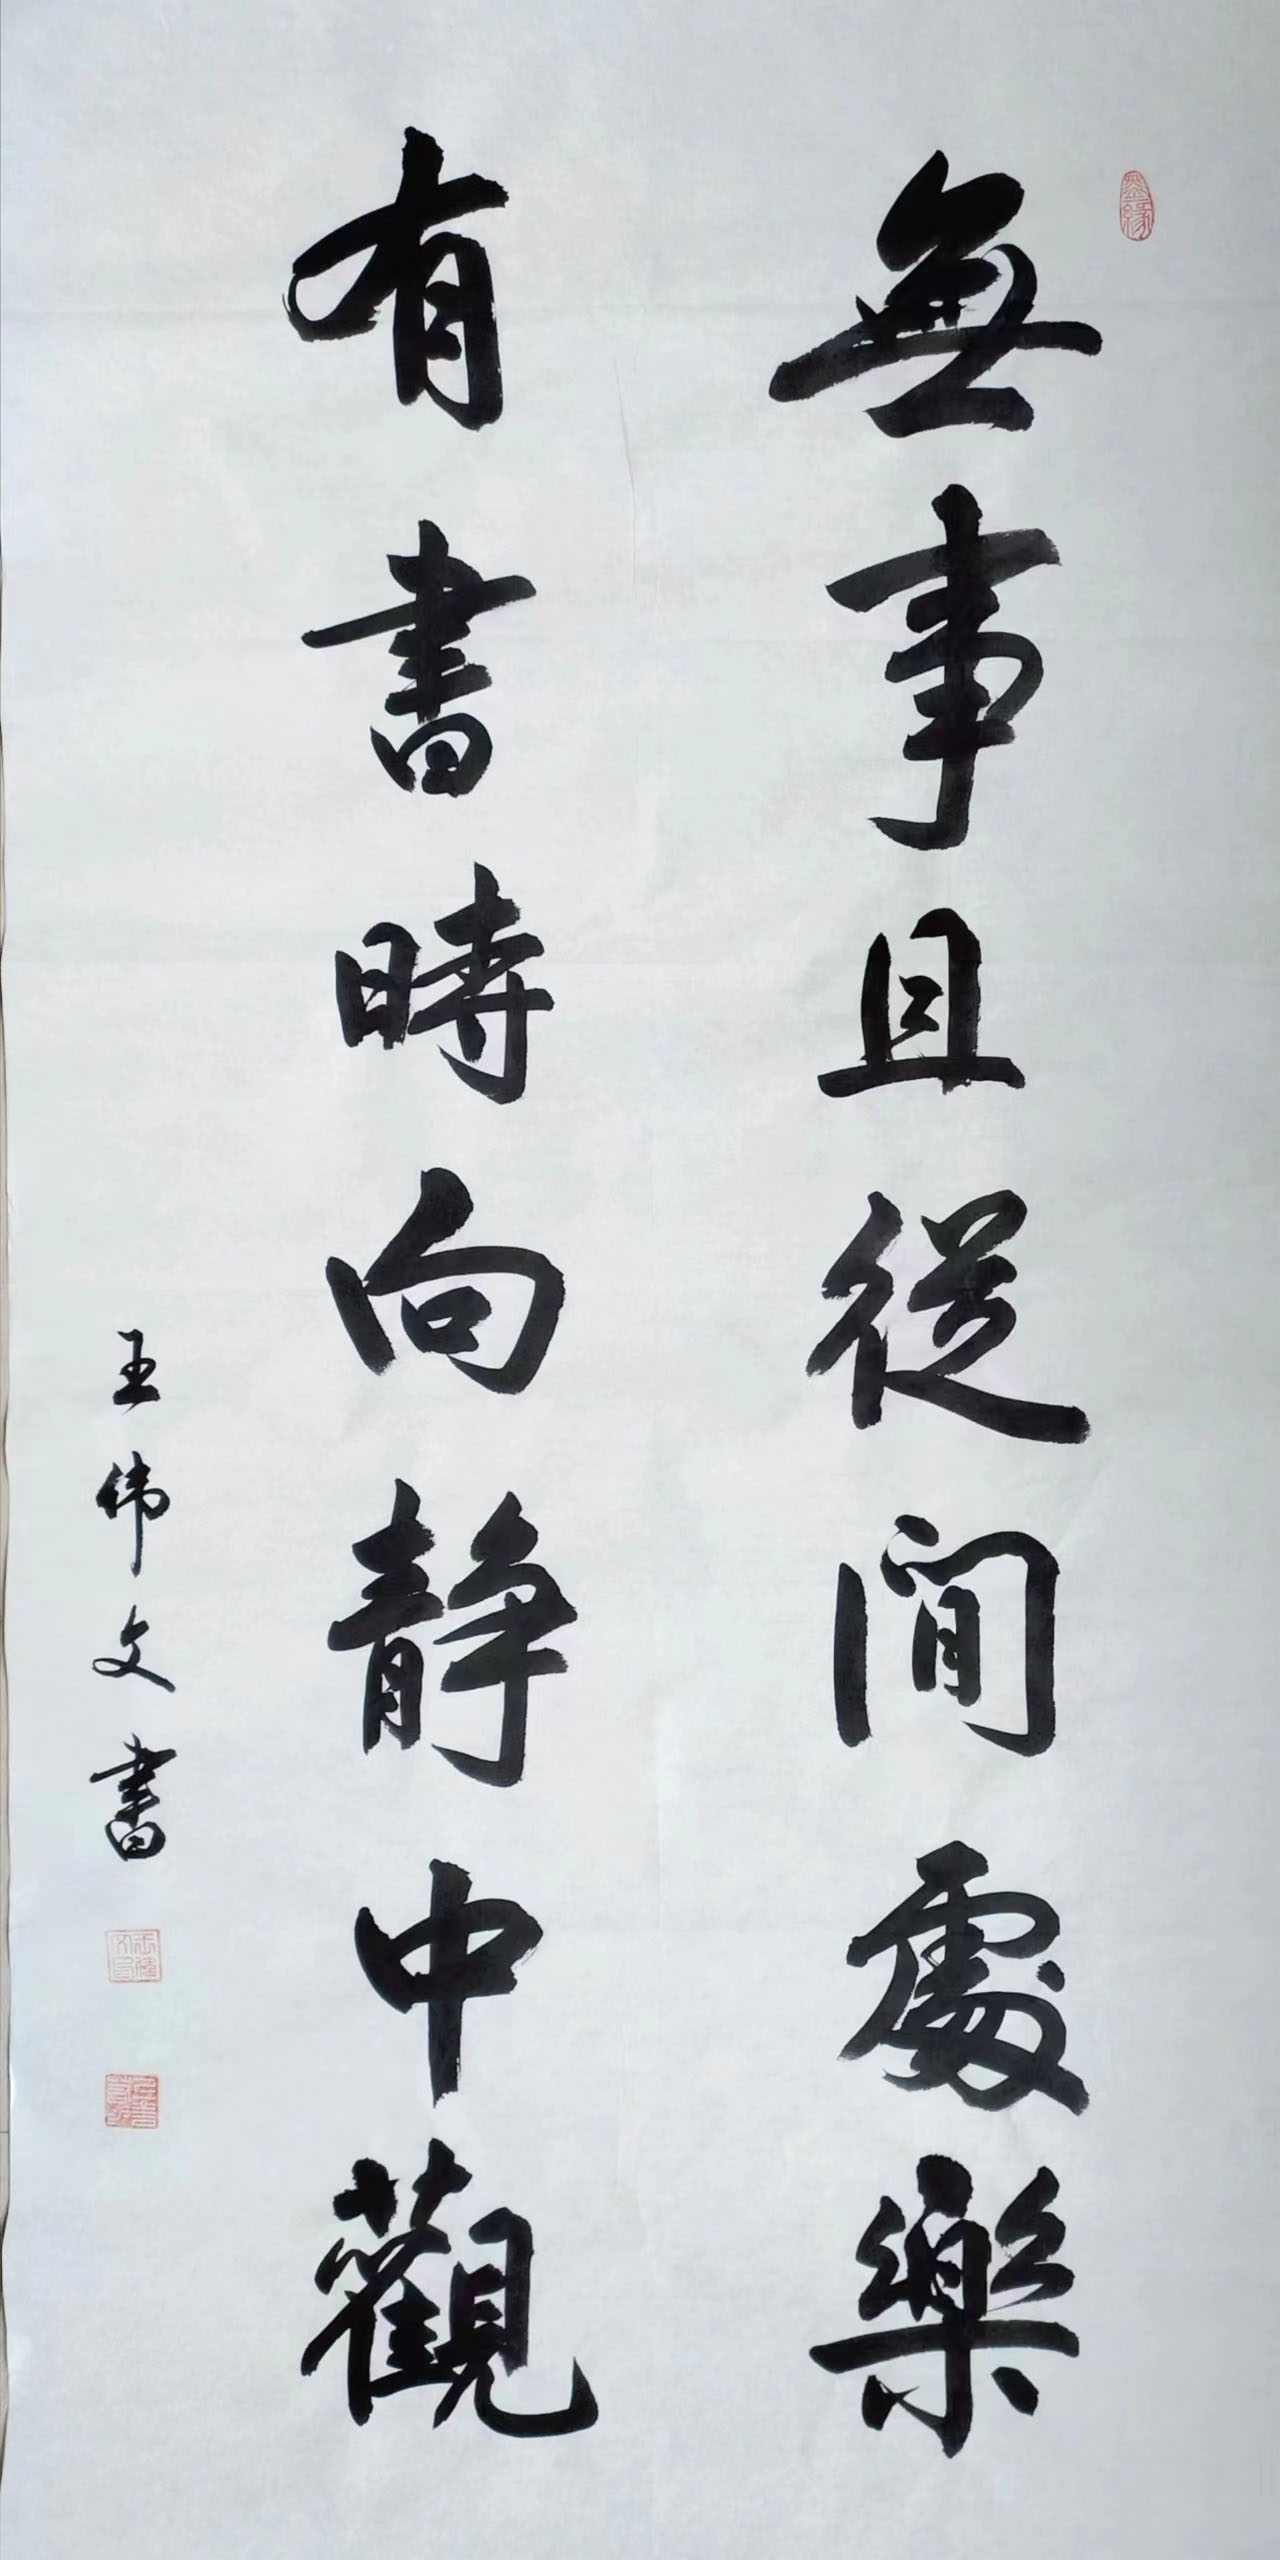 無事且從閒處樂
有書時向静中觀
王伟文書
墨缘